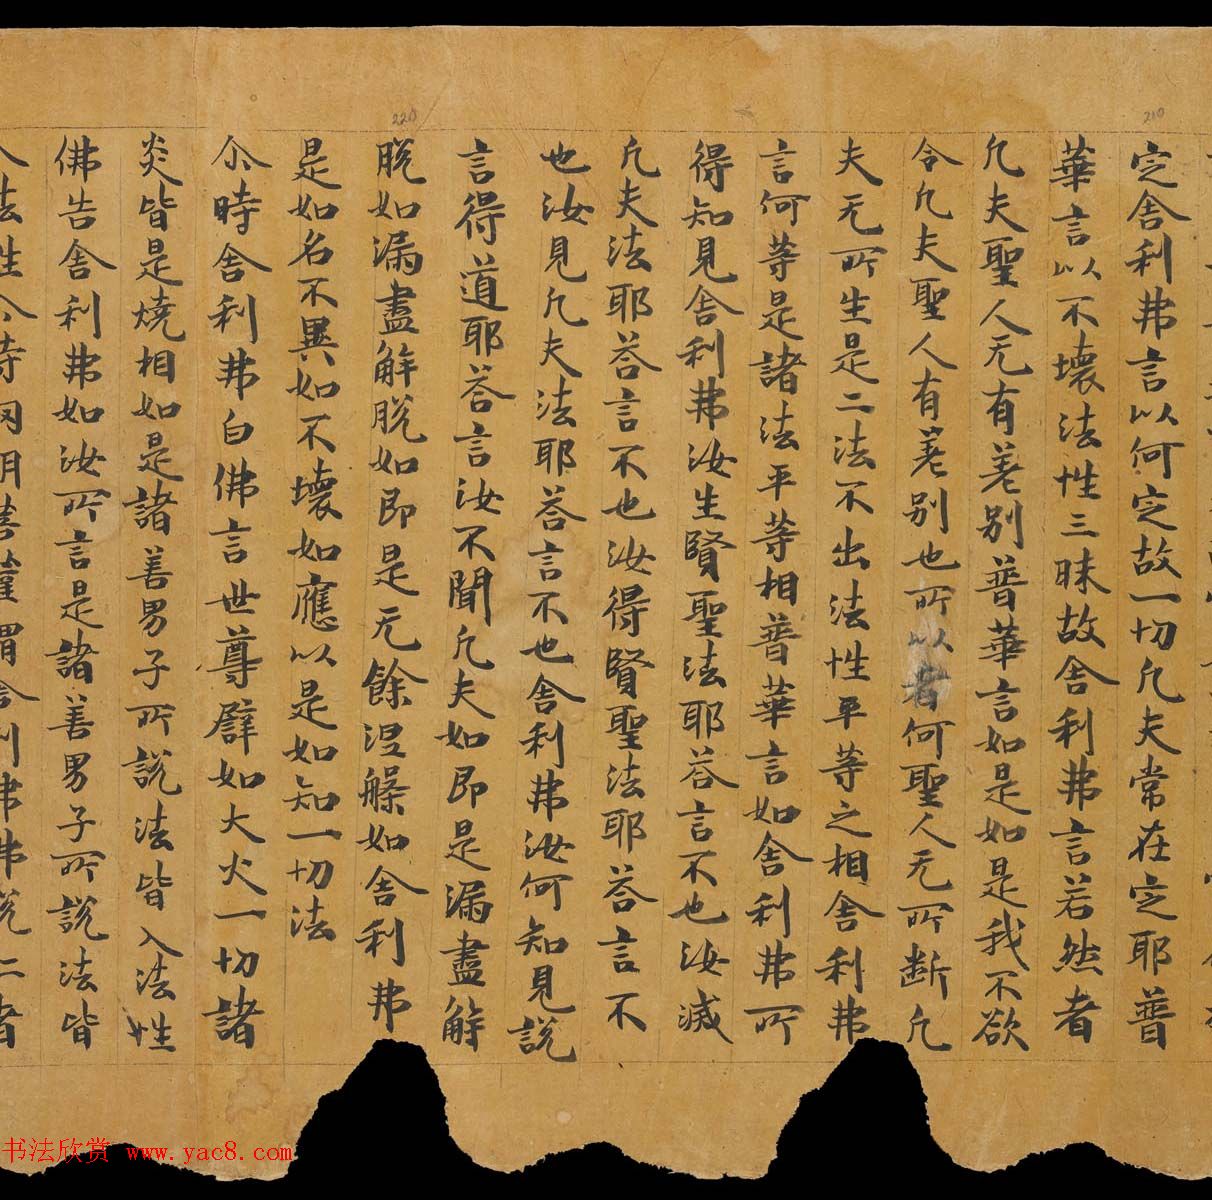 定舍利弗言以何定故一切凡夫常在定耶普
華言以不壞法性三昧故舍利弗言若然者
凡夫聖人无有差別普華言如是如是我不欲
令凡夫聖人有差別也所以者何聖人无所斷凡
夫无所生是二法不出法性平等之相舍利弗
言何等是諸法平等相普華言如舍利弗所
得知見舍利弗汝生賢聖法耶答言不也汝滅
凡夫法耶答言不也汝得賢聖法耶答言不
也汝見凡夫法耶答言不也舍利弗汝何知見說
言得道耶答言汝不聞凡夫如即是漏盡解
脫如漏盡解脫如即是无餘涅槃如舍利弗
是如名不異如不壞如應以是如知一切法
尒時舍利弗白佛言世尊譬如大火一切諸
炎皆是燒相如是諸善男子所說法皆入法性
佛告舍利弗如汝所言是諸善男子所說法皆
入法性尒時網明菩薩謂舍利弗佛說仁者
220
210
书法欣赏 www.yac8.com